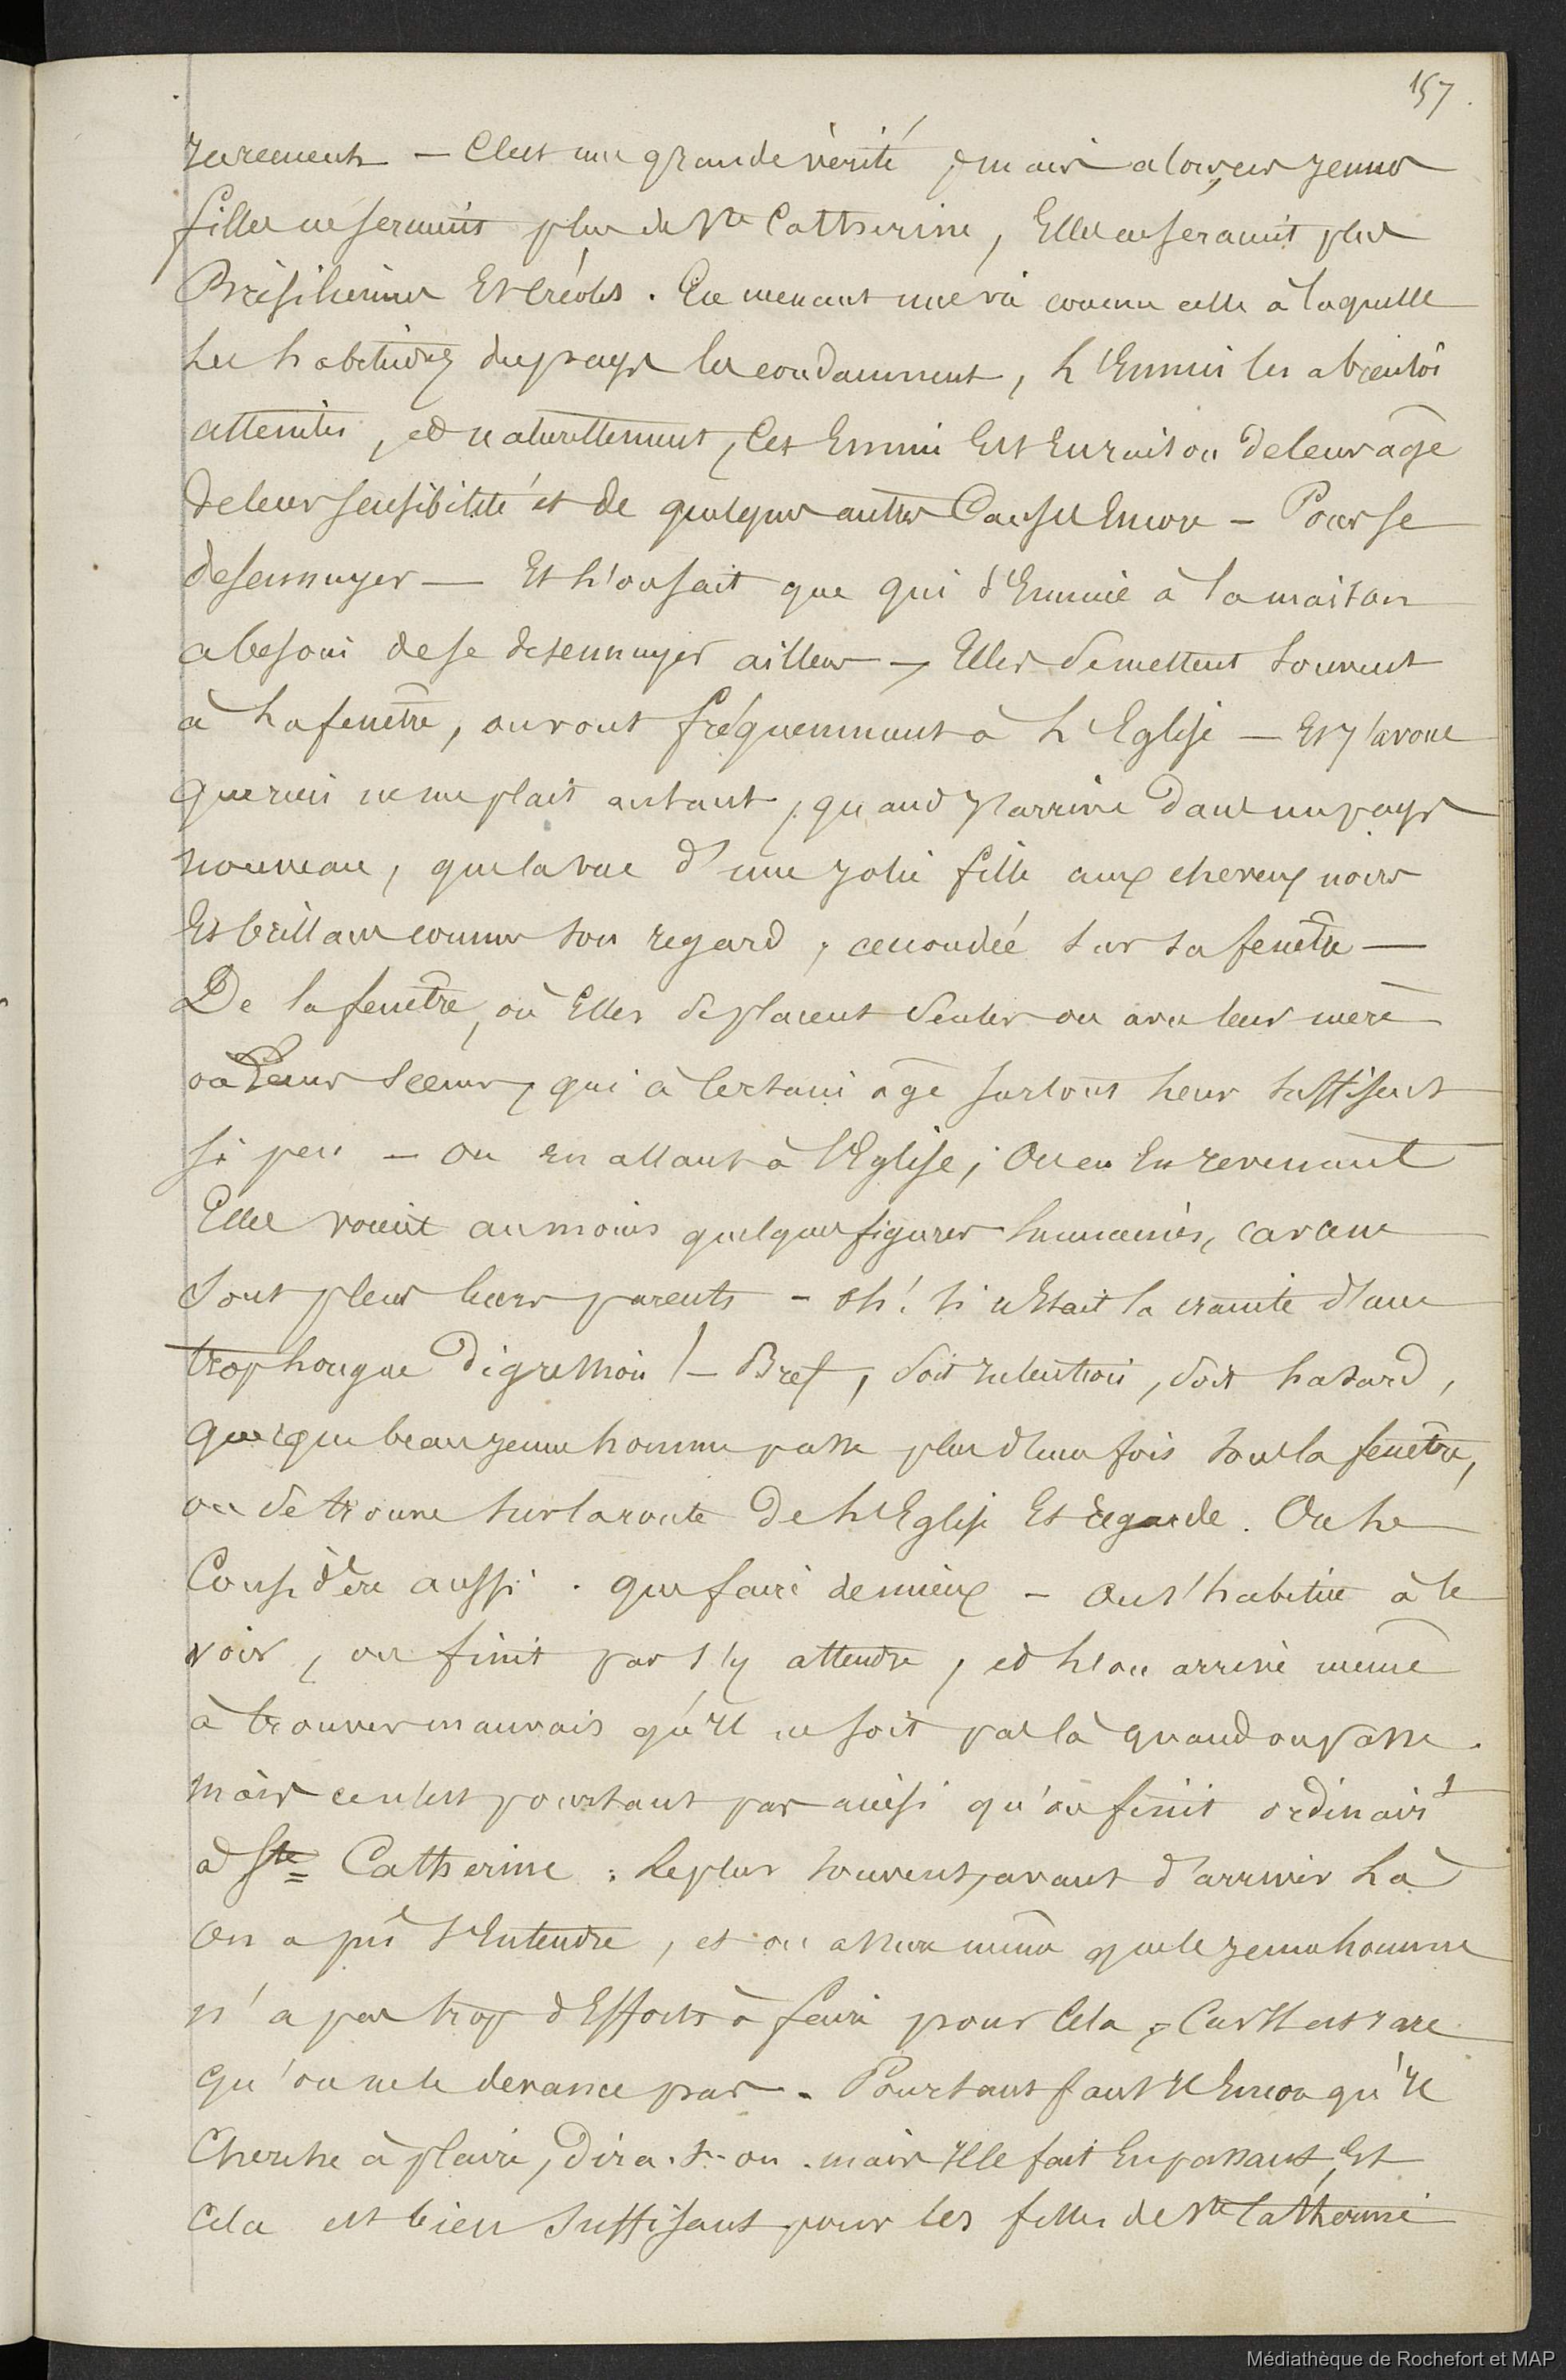 157.
rarement — C'est une grande vérité, mais alors, ces jeunes
filles ne seraient plus de Ste Catherine, Elles ne seraient plus
Brésiliennes Et Créoles. En menant une vie comme celle à laquelle
les habitudes du pays les condamnent, l'Ennui les a bientôt
atteintes, et naturellement, Cet Ennui Est En raison de leur âge
de leur sensibilité et de quelques autres Causes Encore — Pour se
desennuyer — Et l'on sait que qui s'Ennuie à la maison
a besoin de se desennuyer ailleurs —, Elles se mettent souvent
à la fenêtre, ou vont fréquemment à l'Eglise — Et j'avoue
que rien ne me plait autant, quand j'arrive dans un pays
nouveau, que la vue d'une jolie fille aux cheveux noirs
Et brillans comme son regard, accoudée sur sa fenêtre —
De la fenêtre, où Elles se placent seules ou avec leur mère
ou leurs sœurs, qui à certain âge surtout leur suffisent
si peu — ou en allant à l'Eglise, Ou en En revenant
Elles voient au moins quelques figures humaines, car ceux
sont plus leurs parents — Oh! si n'Etait la crainte d'une
trop longue digression! — Bref, soit intention, soit hasard,
quelque beau jeune homme passe plus d'une fois sous la fenêtre,
ou se trouve sur la route de l'Eglise Et regarde. On le
Considère aussi. que faire de mieux — On s'habitue à le
voir, on finit par s'y attendre, et l'on arrive même
à trouver mauvais qu'Il ne soit pas là quand on passe.
Mais ce n'est pourtant pas ainsi qu'on finit ordinairt
à Ste Catherine : le plus souvent, avant d'arriver là
On a pû s'Entendre, et on assure même que le jeune homme
n'a pas trop d'Efforts à faire pour Cela, Car Il est rare
qu'on ne le devance pas. Pourtant faut Il Encore qu'Il
Cherche à plaire, dira-t-on. mais Il le fait En passant, Et
Cela est bien suffisant pour les filles de Ste Catherine
Médiathèque de Rochefort et MAP